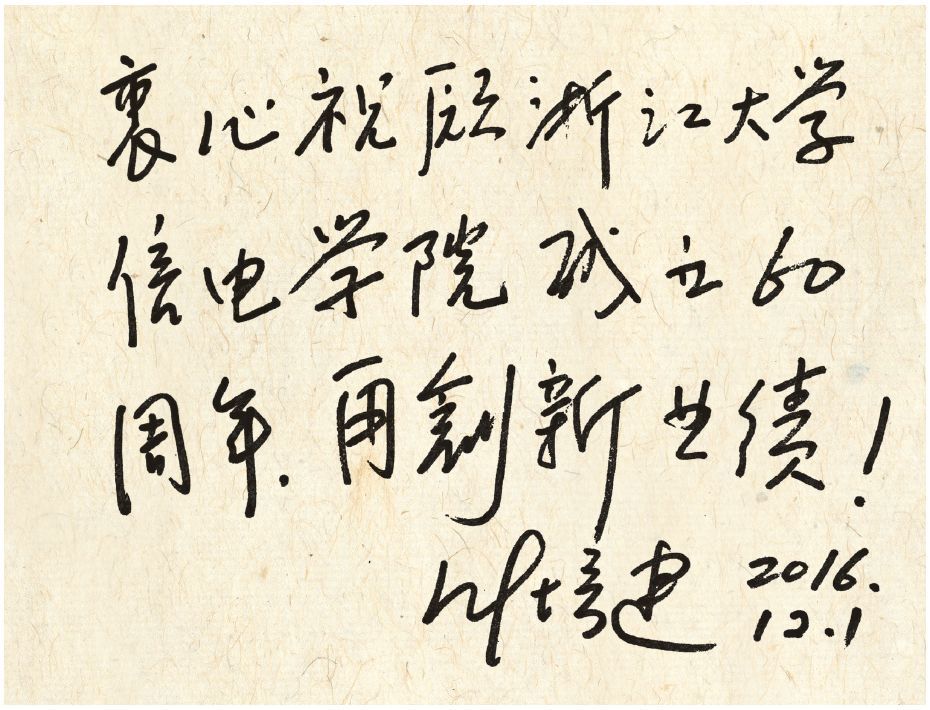 衷心祝愿浙江大学
信电学院成立60
周年.再创新业绩!
叶培建 2016.
12.1